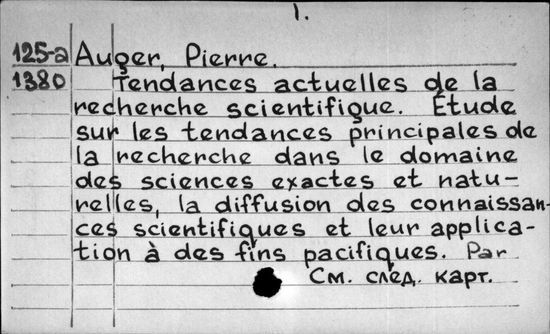 1.
125-a Auger, Pierre.
1380 Tendances actuelles de la
recherche scientifique. Étude
sur les tendances principales de
la recherche dans le domaine
des sciences exactes et natu-
relles, la diffusion des connaissan-
ces scientifiques et leur applica-
tion à des fins pacifiques. Par
См. след. карт.